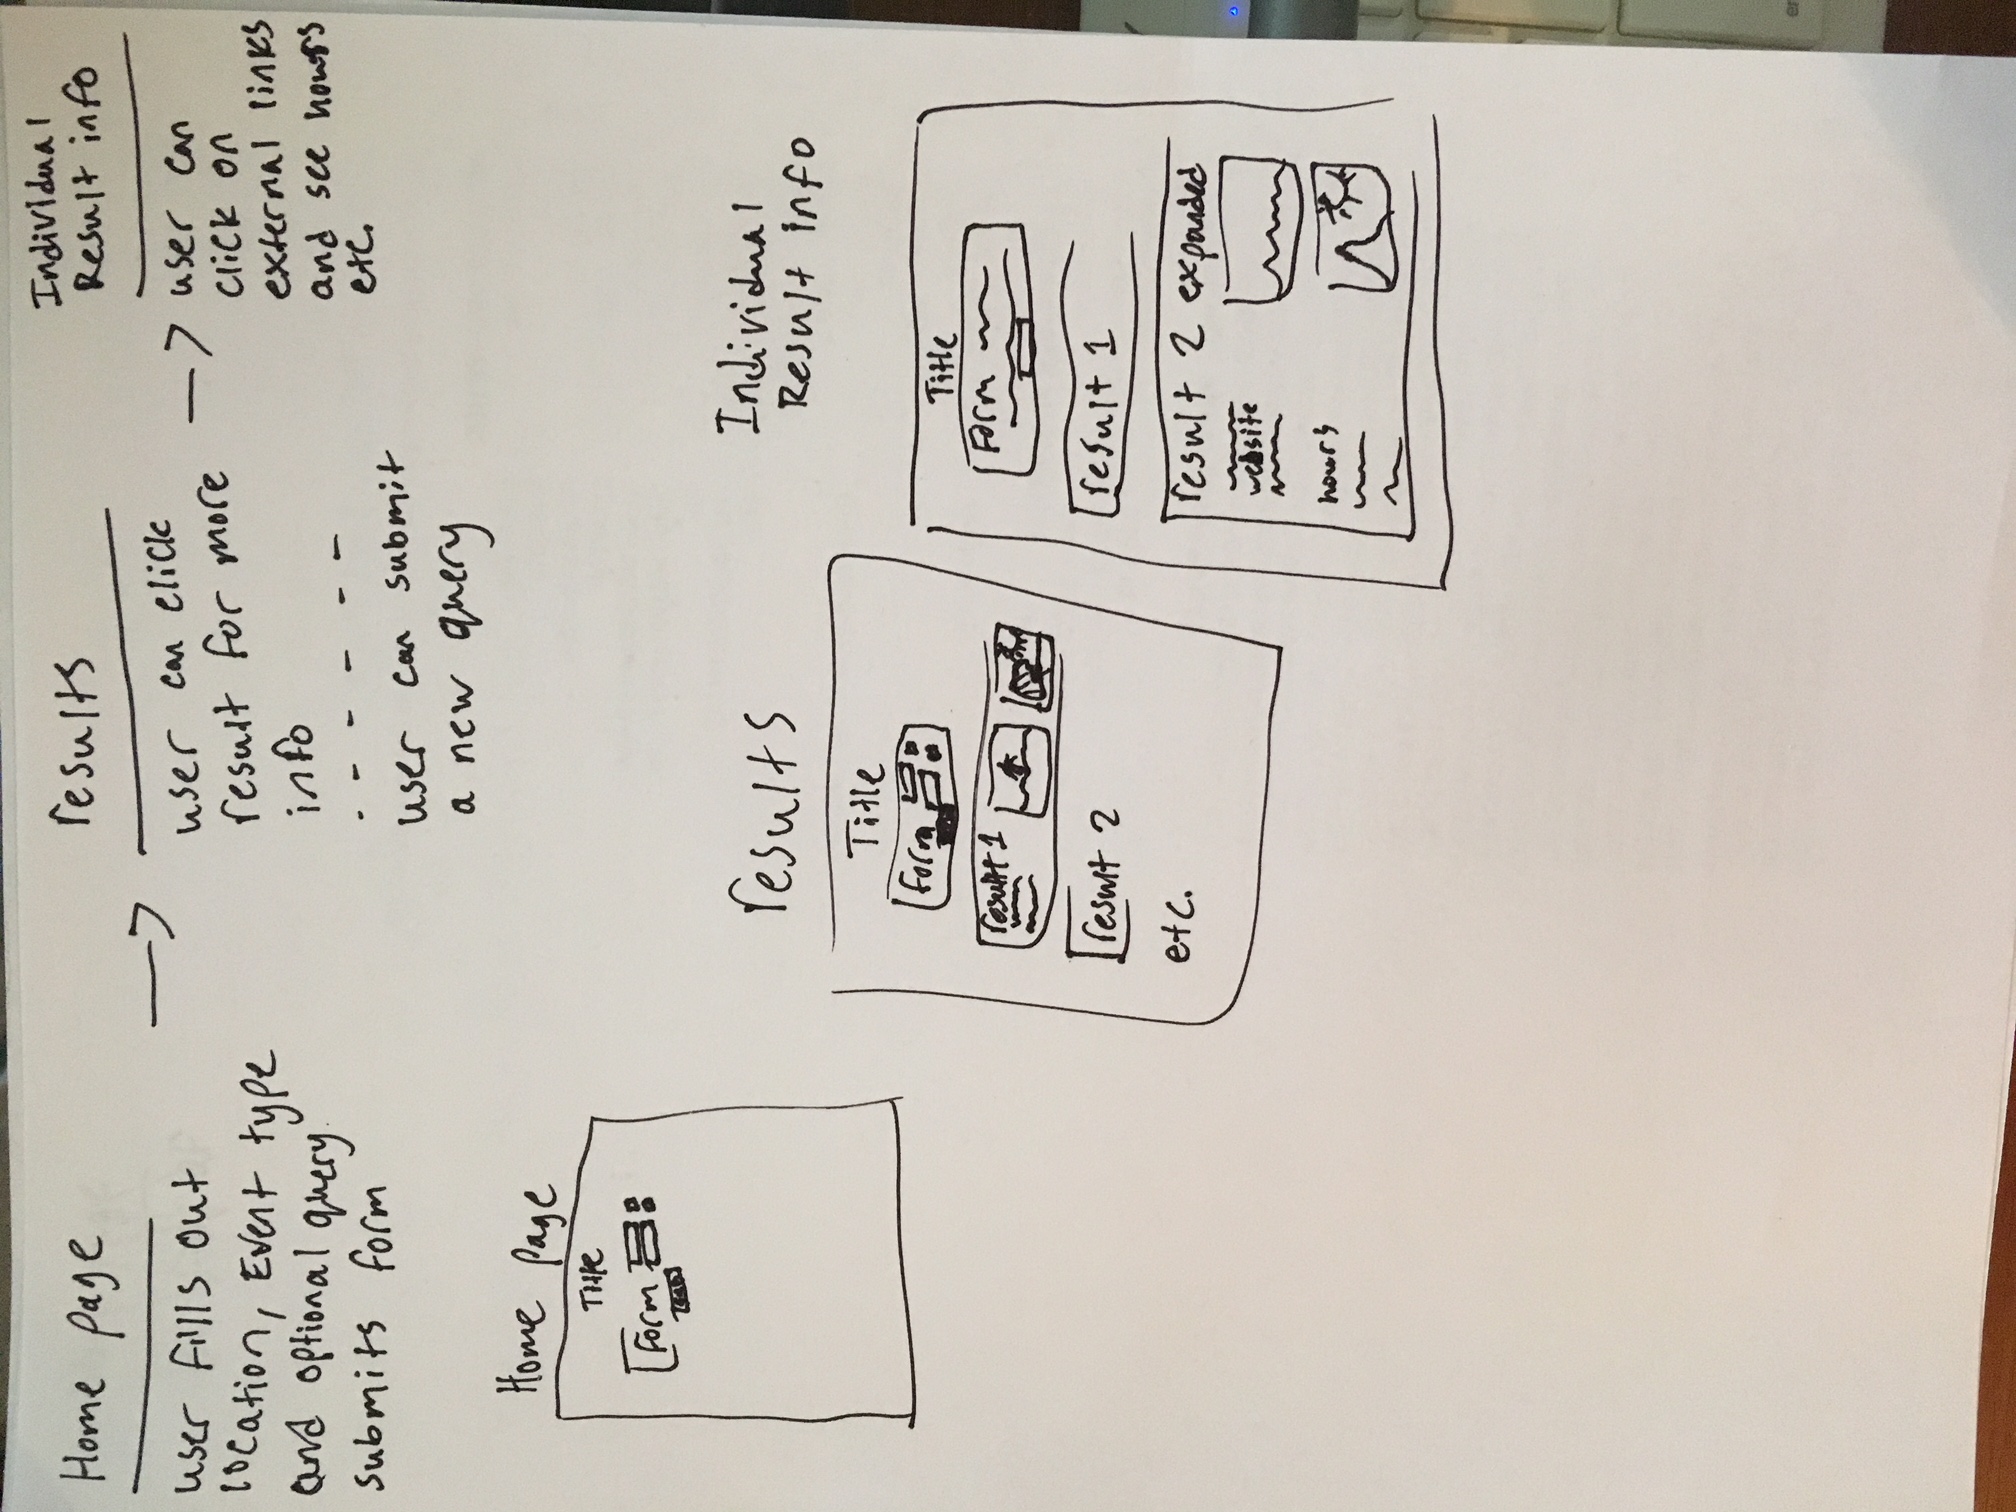 Home page
user fills out
location, Event type
and optional query
submits form
results
user can click
result for more
info
user can submit
a new query
Individual
Result info
user can
click on
external links
and see hours
etc.
Home page
Title
Form
results
Title
Form
result 1
result 2
etc.
Individual
Result info
Title
Form
result 1
result 2 expanded
website
hours